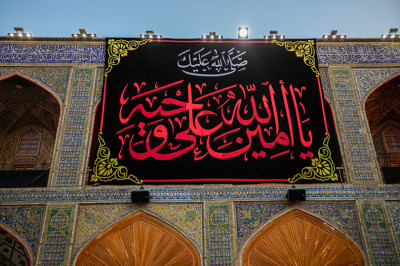 صلى الله عليك
يا أمين الله على وحيه